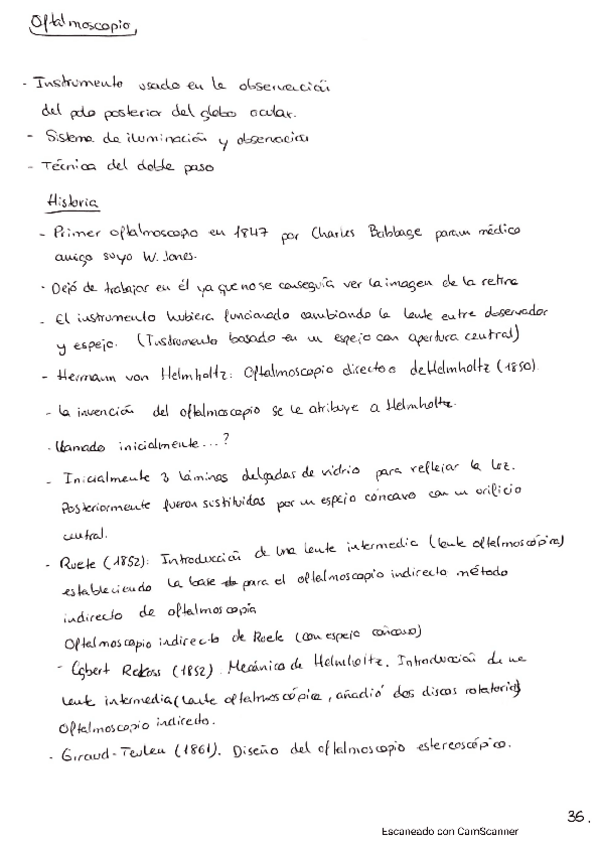 Oftalmoscopio
- Instrumento usado en la observación
del polo posterior del globo ocular.
- Sistema de iluminación y observación
- Técnica del doble paso
Historia
- Primer oftalmoscopio en 1847 por Charles Babbage para un médico
amigo suyo W. Jones.
- Dejó de trabajar en él ya que no se conseguía ver la imagen de la retina
- El instrumento hubiera funcionado cambiando la lente entre observador
y espejo. (Instrumento basado en un espejo con apertura central)
- Hermann von Helmholtz: Oftalmoscopio directo o de Helmholtz (1850)
- la invención del oftalmoscopio se le atribuye a Helmholtz.
- Llamado inicialmente...?
- Inicialmente 3 láminas delgadas de vidrio para reflejar la luz.
Posteriormente fueron sustituidas por un espejo cóncavo con un orificio
central.
- Ruete (1852): Introducción de una lente intermedia (lente oftalmoscópica)
estableciendo la base para el oftalmoscopio indirecto método
indirecto de oftalmoscopia
Oftalmoscopio indirecto de Ruete (con espejo cóncavo)
- Egbert Rekoss (1852). Mecánico de Helmholtz. Introducción de una
lente intermedia (lente oftalmoscópica, añadió dos discos rotatorios)
Oftalmoscopio indirecto.
- Giraud-Teulen (1861). Diseño del oftalmoscopio estereoscópico.
36.
Escaneado con CamScanner